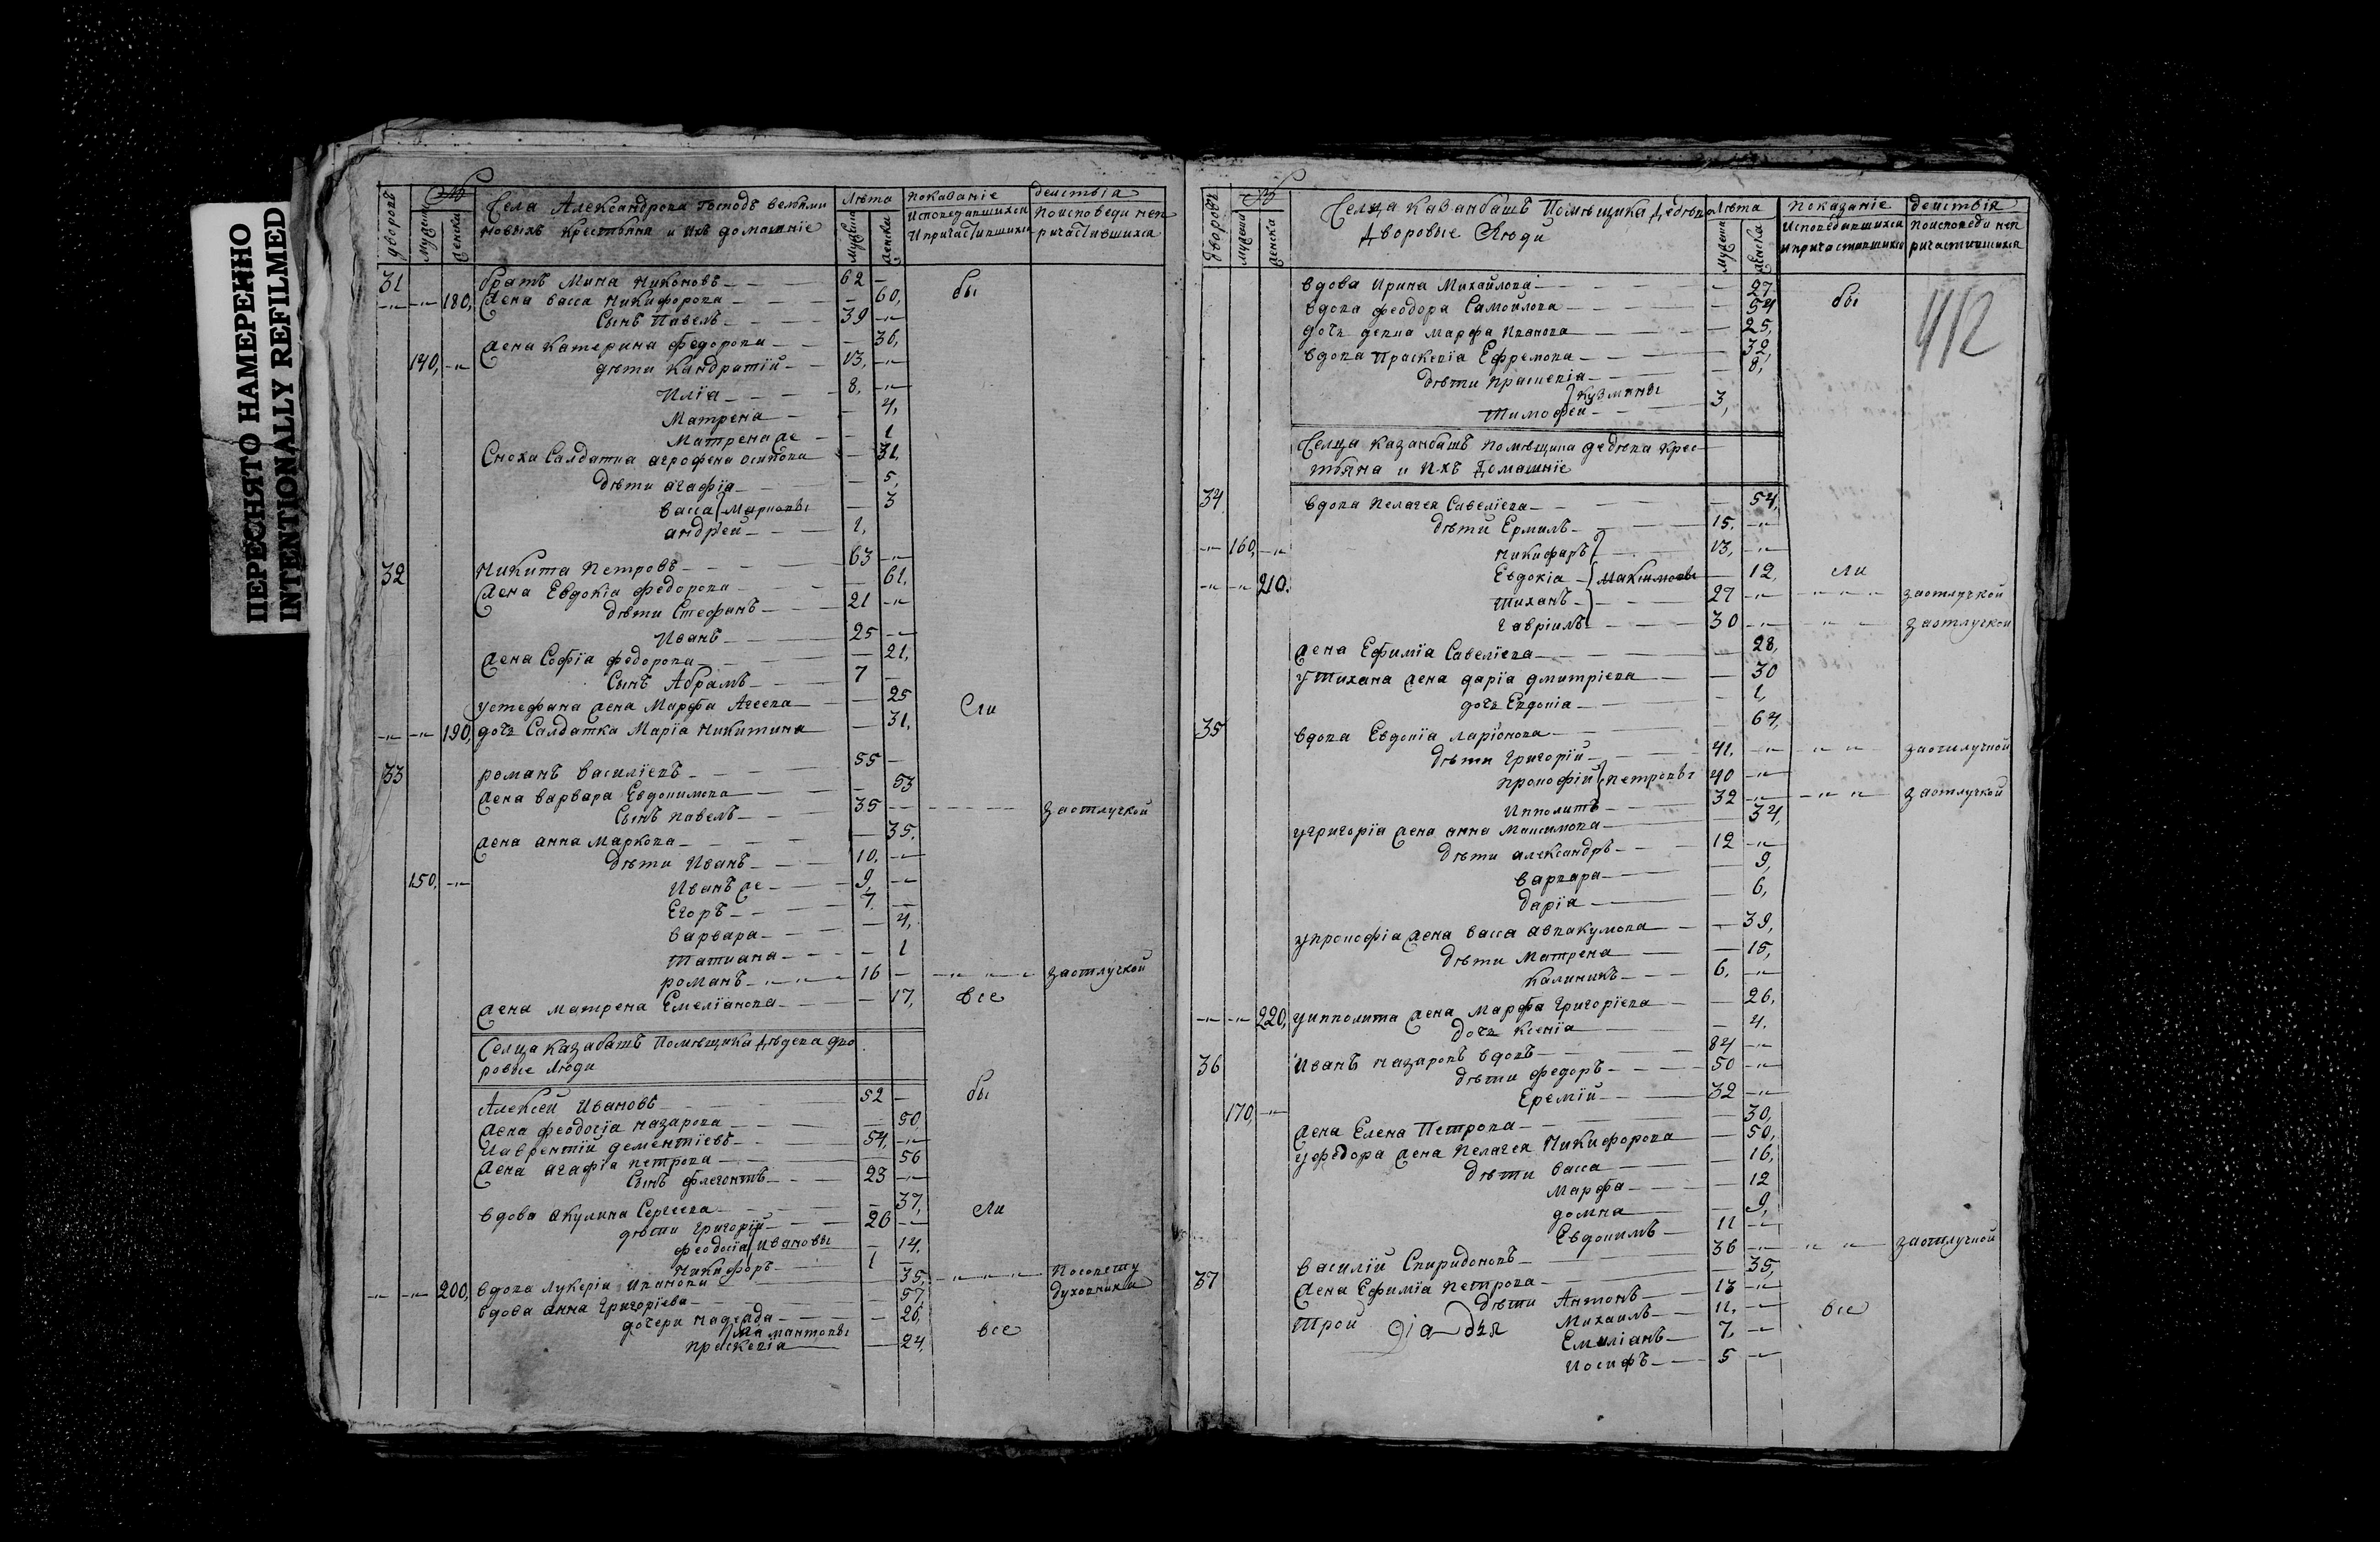 ПЕРЕСНЯТО НАМЕРЕННО
INTENTIONALLY REFILMED
дворовъ
№
мужеска
женска
Села Александрова господъ
новыхъ крестьяна и ихъ домашніе
Лѣта
мужеска
женска
показаніе действія
исповедавшихся и причастившихся
по исповеди неп
ричастившихся
31 братъ Мина Никоновъ 62 —
180, жена васса Никифорова — 60, бы
Сынъ Павелъ 39
жена катерина федорова — 36,
140, дѣти Кандратій 13,
Иліа 8,
Матрена — 4,
Матрена же — 1
Сноха Салдатка агрофена осипова — 31,
дѣти агафіа — 5,
васса Марковы — 3
андрей 1,
32 Никита Петровъ 63
жена Евдокіа федорова — 61,
дѣти Стефанъ 21
Иванъ 25
жена Софіа федорова — 21,
Сынъ Абрамъ 7 —
у стефана жена Марфа Агеева — 25
190, дочь Салдатка Маріа Никитина — 31, сли
33 романъ василіевъ 55 —
жена варвара Евдокимова — 53
Сынъ павелъ 35 — за отлучкой
жена анна Маркова — 35,
дѣти Иванъ 10,
150, Иванъ же 9,
Егоръ 7 —
варвара — 4,
татиана — 1
романъ 16 — за отлучкой
жена матрена Емеліанова — 17, все
Селца казабашъ помѣщика дѣдева дво
ровые люди
Алексей Ивановъ 52 — бы
жена феодосіа назарова — 50,
Лаврентій дементіевъ 54,
жена агафіа петрова — 56
Сынъ флегонтъ 23
вдова акулина Сергеева — 37,
дѣти григорій 26 сли
феодосіа ивановы — 14,
Никифоръ 1 —
200, вдова лукеріа иванова — 35, по совету
духовника
вдова анна григоріева — 57,
дочери надежда — 26,
праскевіа — 24, все
дворовъ
№
мужеска
женска
Селца казанбашъ помѣщика дедева
дворовые люди
Лѣта
мужеска
женска
показаніе действія
исповедавшихся и причастившихся
по исповеди неп
ричастившихся
412
вдова ирина Михайлова — 27 бы
вдова феодора Самойлова — 54
дочь девка марфа иванова — 25,
вдова праскевіа Ефремова — 32
дѣти праскевіа — 8,
кузмины
тимофей 3,
Селца казанбашъ помѣщика дедева крес
тьяна и ихъ домашніе
34 вдова пелагея Савеліева — 54,
дѣти Ермилъ 15,
160, никифаръ 13,
210. Евдокіа Максимовы — 12, сли
тиханъ 27 за отлучкой
гавріилъ 30 за отлучкой
жена Ефиміа Савеліева — 28,
у тихана жена даріа дмитріева — 30
дочь Евдокіа — 1,
35 вдова Евдокіа ларіонова — 64,
дѣти григорій 41, за отлучкой
прокофій петровы 40
ипполитъ 32 за отлучкой
у григоріа жена анна максимова — 34,
дѣти александръ 12
варвара — 9,
даріа — 6,
у прокофіа жена васса аввакумова — 39,
дѣти матрена — 15,
калиникъ 6,
220, у ипполита жена марфа григоріева — 26,
дочь ксеніа — 4.
36 иванъ назаровъ вдовъ 84
дѣти федоръ 50
170, Еремій 32
жена Елена петрова — 30,
у федора жена пелагея никифорова — 50,
дѣти васса — 16,
марфа — 12
домна — 9,
Евдокимъ 11
37 василій Спиридоновъ 36 за отлучкой
жена Ефиміа петрова — 35,
дѣти Антонъ 13
трои діадъя Михаилъ 11, все
Емиліанъ 7,
иосифъ 5